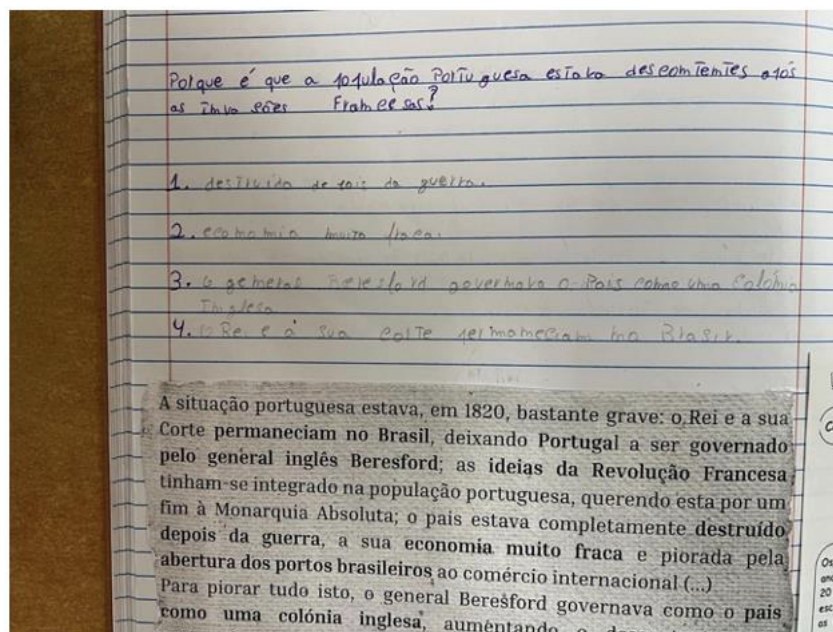 Porque é que a população Portuguesa estava descomtemtes após
as imvasões Framcesas?
1. destruido depois da guerra.
2. ecomomia muito fraca.
3. O gemeral Beresford governava o País como uma Colónia
Imglesa.
4. O Rei e a sua corte permameciam mo Brasil.
A situação portuguesa estava, em 1820, bastante grave: o Rei e a sua
Corte permaneciam no Brasil, deixando Portugal a ser governado
pelo general inglês Beresford; as ideias da Revolução Francesa
tinham-se integrado na população portuguesa, querendo esta por um
fim à Monarquia Absoluta; o pais estava completamente destruído
depois da guerra, a sua economia muito fraca e piorada pela
abertura dos portos brasileiros ao comércio internacional (...)
Para piorar tudo isto, o general Beresford governava como o pais
como uma colónia inglesa, aumentando o
Os
20